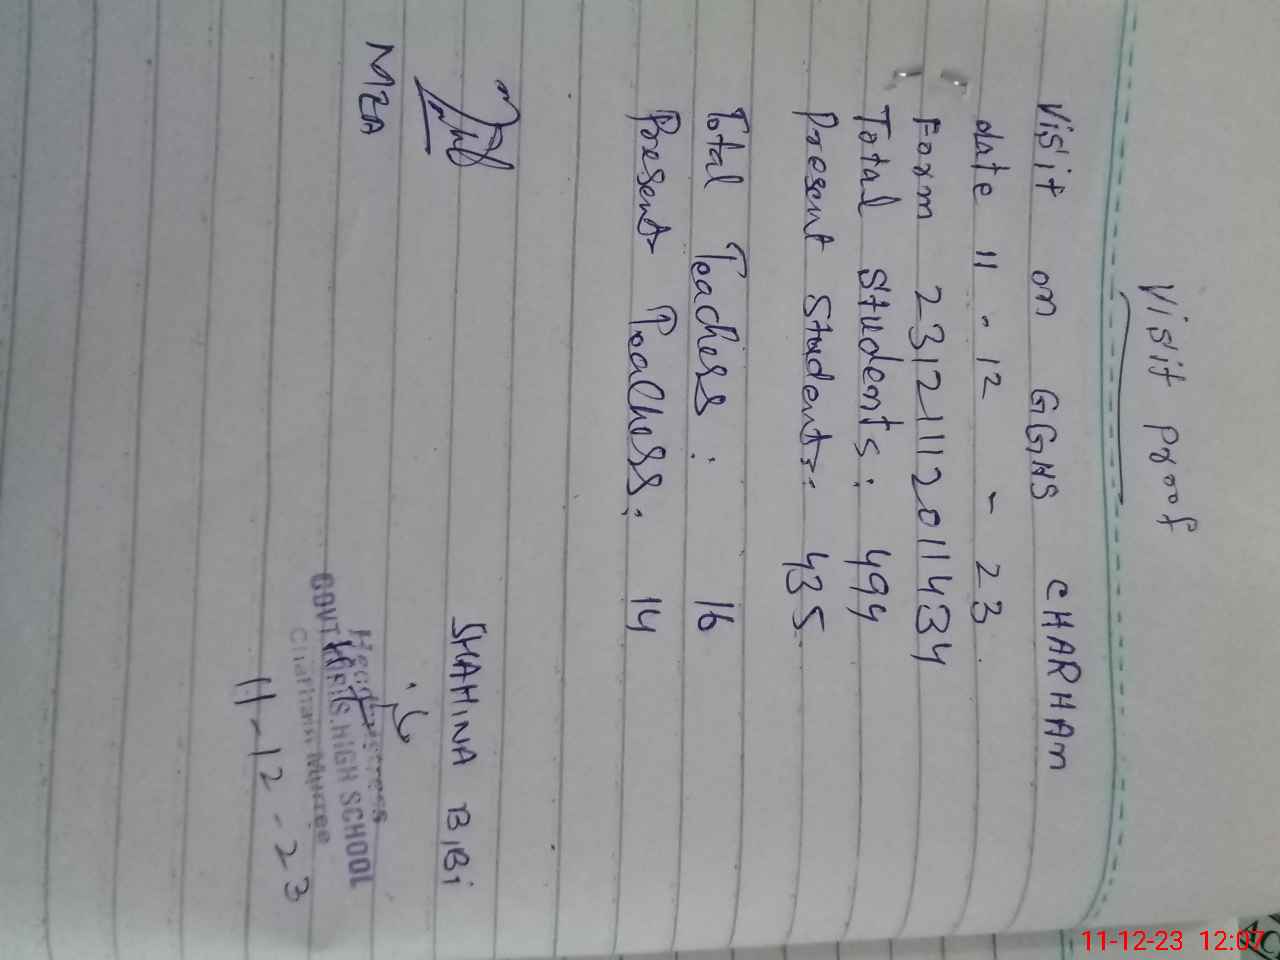 Visit proof
Visit on GGHS CHARHAN
date 11 - 12 - 23
Form 231211120111434
Total Students: 494
Present Students: 435
Total Teachers: 16
Present Teachers: 14
SHAHINA BiBi
MEA
Headmistress
GOVT. GIRLS HIGH SCHOOL
Charhan Murree
11-12-23
11-12-23 12:07